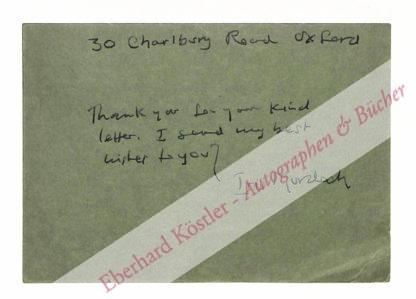 30 Charlbury Road Oxford
Thank you for your kind
letter. I send my best
wishes to you
Iris Murdoch
Eberhard Köstler - Autographen & Bücher